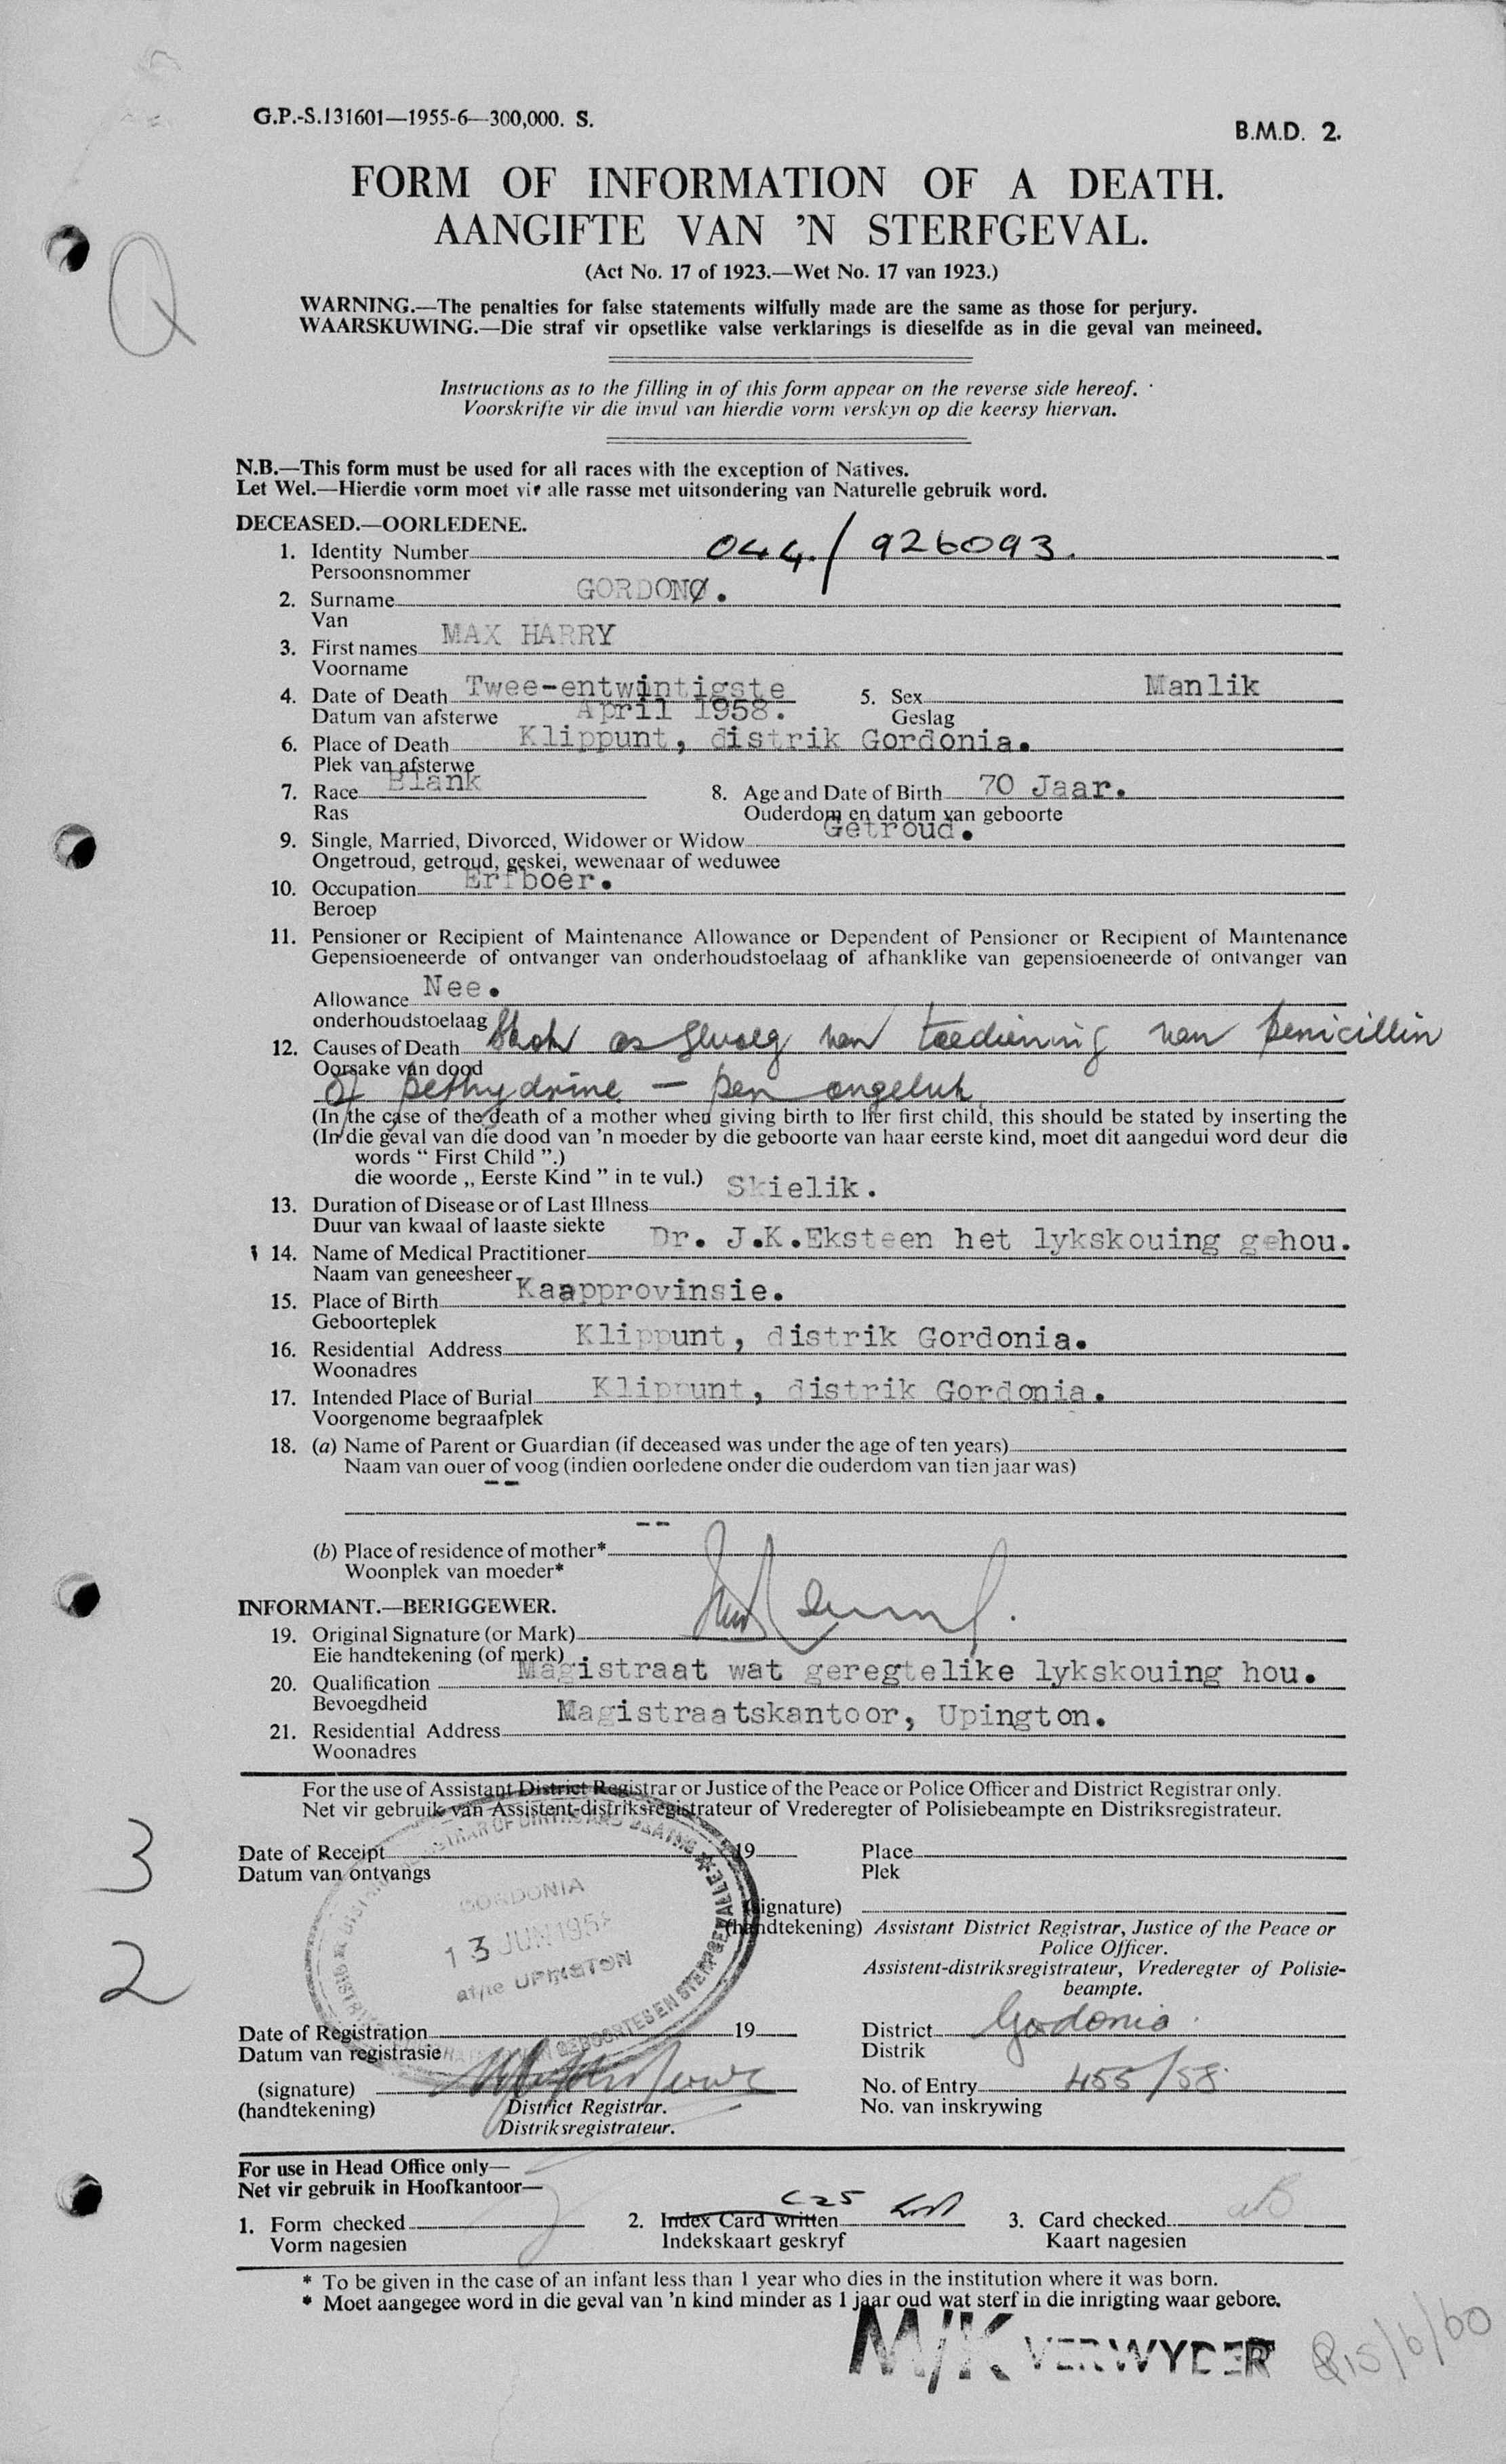 G.P.-S.131601—1955-6—300,000. S.
B.M.D. 2.
FORM OF INFORMATION OF A DEATH.
AANGIFTE VAN 'N STERFGEVAL.
(Act No. 17 of 1923.—Wet No. 17 van 1923.)
WARNING.—The penalties for false statements wilfully made are the same as those for perjury.
WAARSKUWING.—Die straf vir opsetlike valse verklarings is dieselfde as in die geval van meineed.
Instructions as to the filling in of this form appear on the reverse side hereof.
Voorskrifte vir die invul van hierdie vorm verskyn op die keersy hiervan.
N.B.—This form must be used for all races with the exception of Natives.
Let Wel.—Hierdie vorm moet vir alle rasse met uitsondering van Naturelle gebruik word.
DECEASED.—OORLEDENE.
1. Identity Number 044/926093.
Persoonsnommer
2. Surname GORDON.
Van
3. First names MAX HARRY
Voorname
4. Date of Death Twee-entwintigste 5. Sex Manlik
Datum van afsterwe April 1958. Geslag
6. Place of Death Klippunt, distrik Gordonia.
Plek van afsterwe
7. Race Blank 8. Age and Date of Birth 70 Jaar.
Ras Ouderdom en datum van geboorte
9. Single, Married, Divorced, Widower or Widow Getroud.
Ongetroud, getroud, geskei, wewenaar of weduwee
10. Occupation Erfboer.
Beroep
11. Pensioner or Recipient of Maintenance Allowance or Dependent of Pensioner or Recipient of Maintenance
Gepensioeneerde of ontvanger van onderhoudstoelaag of afhanklike van gepensioeneerde of ontvanger van
Allowance Nee.
onderhoudstoelaag
12. Causes of Death Skok as gevolg van toediening van penicillin
Oorsake van dood
of pethydrine — per ongeluk
(In the case of the death of a mother when giving birth to her first child, this should be stated by inserting the
(In die geval van die dood van 'n moeder by die geboorte van haar eerste kind, moet dit aangedui word deur die
words “ First Child ”.)
die woorde „ Eerste Kind ” in te vul.)
13. Duration of Disease or of Last Illness Skielik.
Duur van kwaal of laaste siekte
14. Name of Medical Practitioner Dr. J.K.Eksteen het lykskouing gehou.
Naam van geneesheer
15. Place of Birth Kaapprovinsie.
Geboorteplek
16. Residential Address Klippunt, distrik Gordonia.
Woonadres
17. Intended Place of Burial Klippunt, distrik Gordonia.
Voorgenome begraafplek
18. (a) Name of Parent or Guardian (if deceased was under the age of ten years)
Naam van ouer of voog (indien oorledene onder die ouderdom van tien jaar was)
--
--
(b) Place of residence of mother*
Woonplek van moeder*
INFORMANT.—BERIGGEWER.
19. Original Signature (or Mark)
Eie handtekening (of merk)
20. Qualification Magistraat wat geregtelike lykskouing hou.
Bevoegdheid
21. Residential Address Magistraatskantoor, Upington.
Woonadres
For the use of Assistant District Registrar or Justice of the Peace or Police Officer and District Registrar only.
Net vir gebruik van Assistent-distriksregistrateur of Vrederegter of Polisiebeampte en Distriksregistrateur.
Date of Receipt 19 Place
Datum van ontvangs Plek
GORDONIA
13 JUN 1958
at/te UPINGTON
(signature)
(handtekening) Assistant District Registrar, Justice of the Peace or
Police Officer.
Assistent-distriksregistrateur, Vrederegter of Polisie-
beampte.
3
2
Date of Registration 19 District Gordonia
Datum van registrasie Distrik
(signature) No. of Entry 455/58
(handtekening) District Registrar. No. van inskrywing
Distriksregistrateur.
For use in Head Office only—
Net vir gebruik in Hoofkantoor—
C25
1. Form checked 2. Index Card written 3. Card checked
Vorm nagesien Indekskaart geskryf Kaart nagesien
* To be given in the case of an infant less than 1 year who dies in the institution where it was born.
* Moet aangegee word in die geval van 'n kind minder as 1 jaar oud wat sterf in die inrigting waar gebore.
M/K VERWYDER
15/6/60